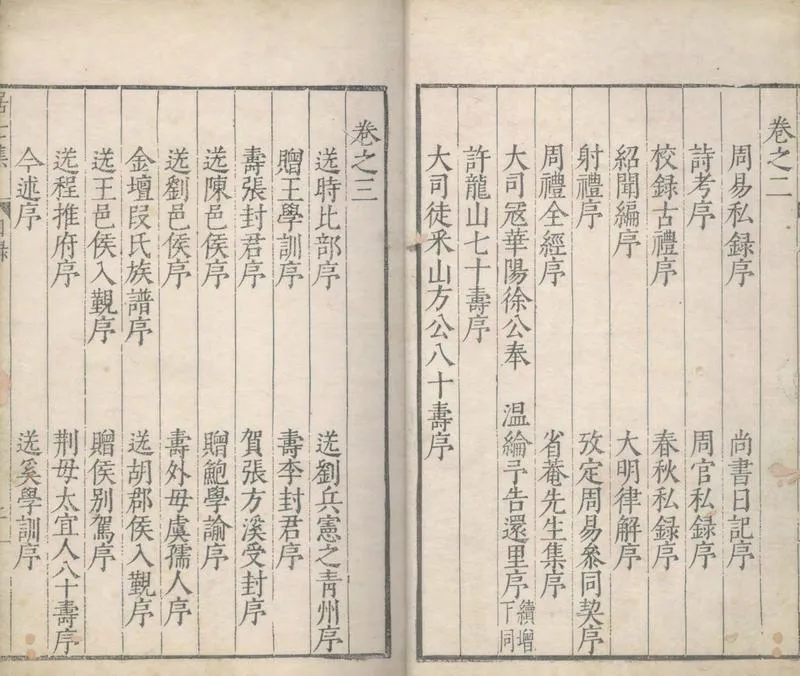 卷之二
周易私録序 尚書日記序
詩考序 周官私録序
校録古禮序 春秋私録序
紹聞編序 大明律解序
射禮序 攷定周易叅同契序
周禮全經序 省菴先生集序
大司冦華陽徐公奉 温綸予告還里序 續增下同
許龍山七十壽序
大司徒釆山方公八十壽序
卷之三
送時比部序 送劉兵憲之青州序
贈王學訓序 壽李封君序
壽張封君序 賀張方溪受封序
送陳邑侯序 贈鮑學諭序
送劉邑侯序 壽外母虞孺人序
金壇段氏族譜序 送胡郡侯入覲序
送王邑侯入覲序 贈侯别駕序
送程推府序 荆母太宜人八十壽序
今述序 送奚學訓序
居士集 目録